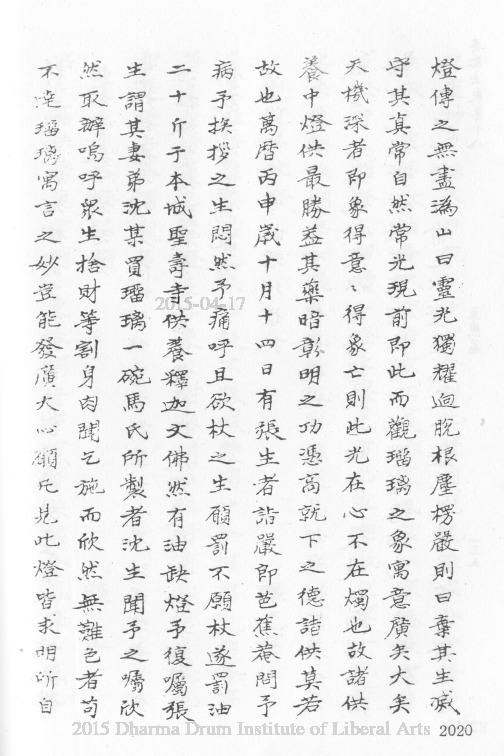 燈傳之無盡溈山曰靈光獨耀迥脫根塵楞嚴則曰棄其生滅
守其真常自然常光現前即此而觀瑠璃之象寓意廣矣大矣
天機深者即象得意〻得象亡則此光在心不在燭也故諸供
養中燈供最勝葢其藥暗彰明之功憑高就下之德諸供莫若
故也萬曆丙申歲十月十四日有張生者詣嚴即芭蕉菴問予
病予挨拶之生悶然予痛呼且欲杖之生願罰不願杖遂罰油
二十斤于本城聖壽寺供養釋迦文佛然有油缺燈予復囑張
生謂其妻弟沈某買瑠璃一碗馬氏所製者沈生聞予之囑欣
然取辦嗚呼眾生捨財等割身肉聞乞施而欣然無難色者苟
不達瑠璃寓言之妙豈能發廣大心願凡見此燈皆求明所自
2015-04-17
2015 Dharma Drum Institute of Liberal Arts
2020